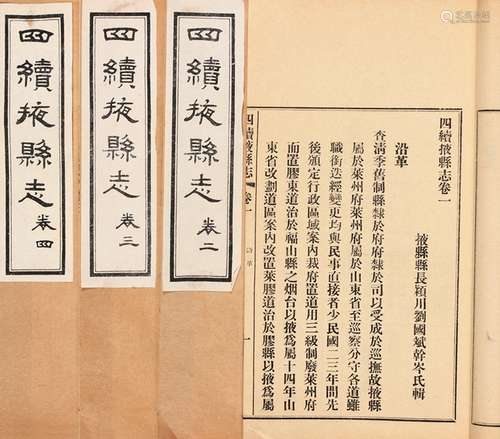 四續掖縣志卷一
掖縣縣長潁川劉國斌幹岑氏輯
沿革
查清季舊制縣隸於府府隸於司以受成於巡撫故掖縣
屬於萊州府萊州府屬於山東省至巡察分守各道雖
職銜迭經變更均與民事直接者少民國二三年間先
後頒定行政區域案內裁府置道用三級制廢萊州府
而置膠東道治於福山縣之烟台以掖爲屬十四年山
東省改劃道區案內改置萊膠道治於膠縣以掖爲屬
四續掖縣志 卷一 沿革 一
四續掖縣志 卷二
四續掖縣志 卷三
四續掖縣志 卷四